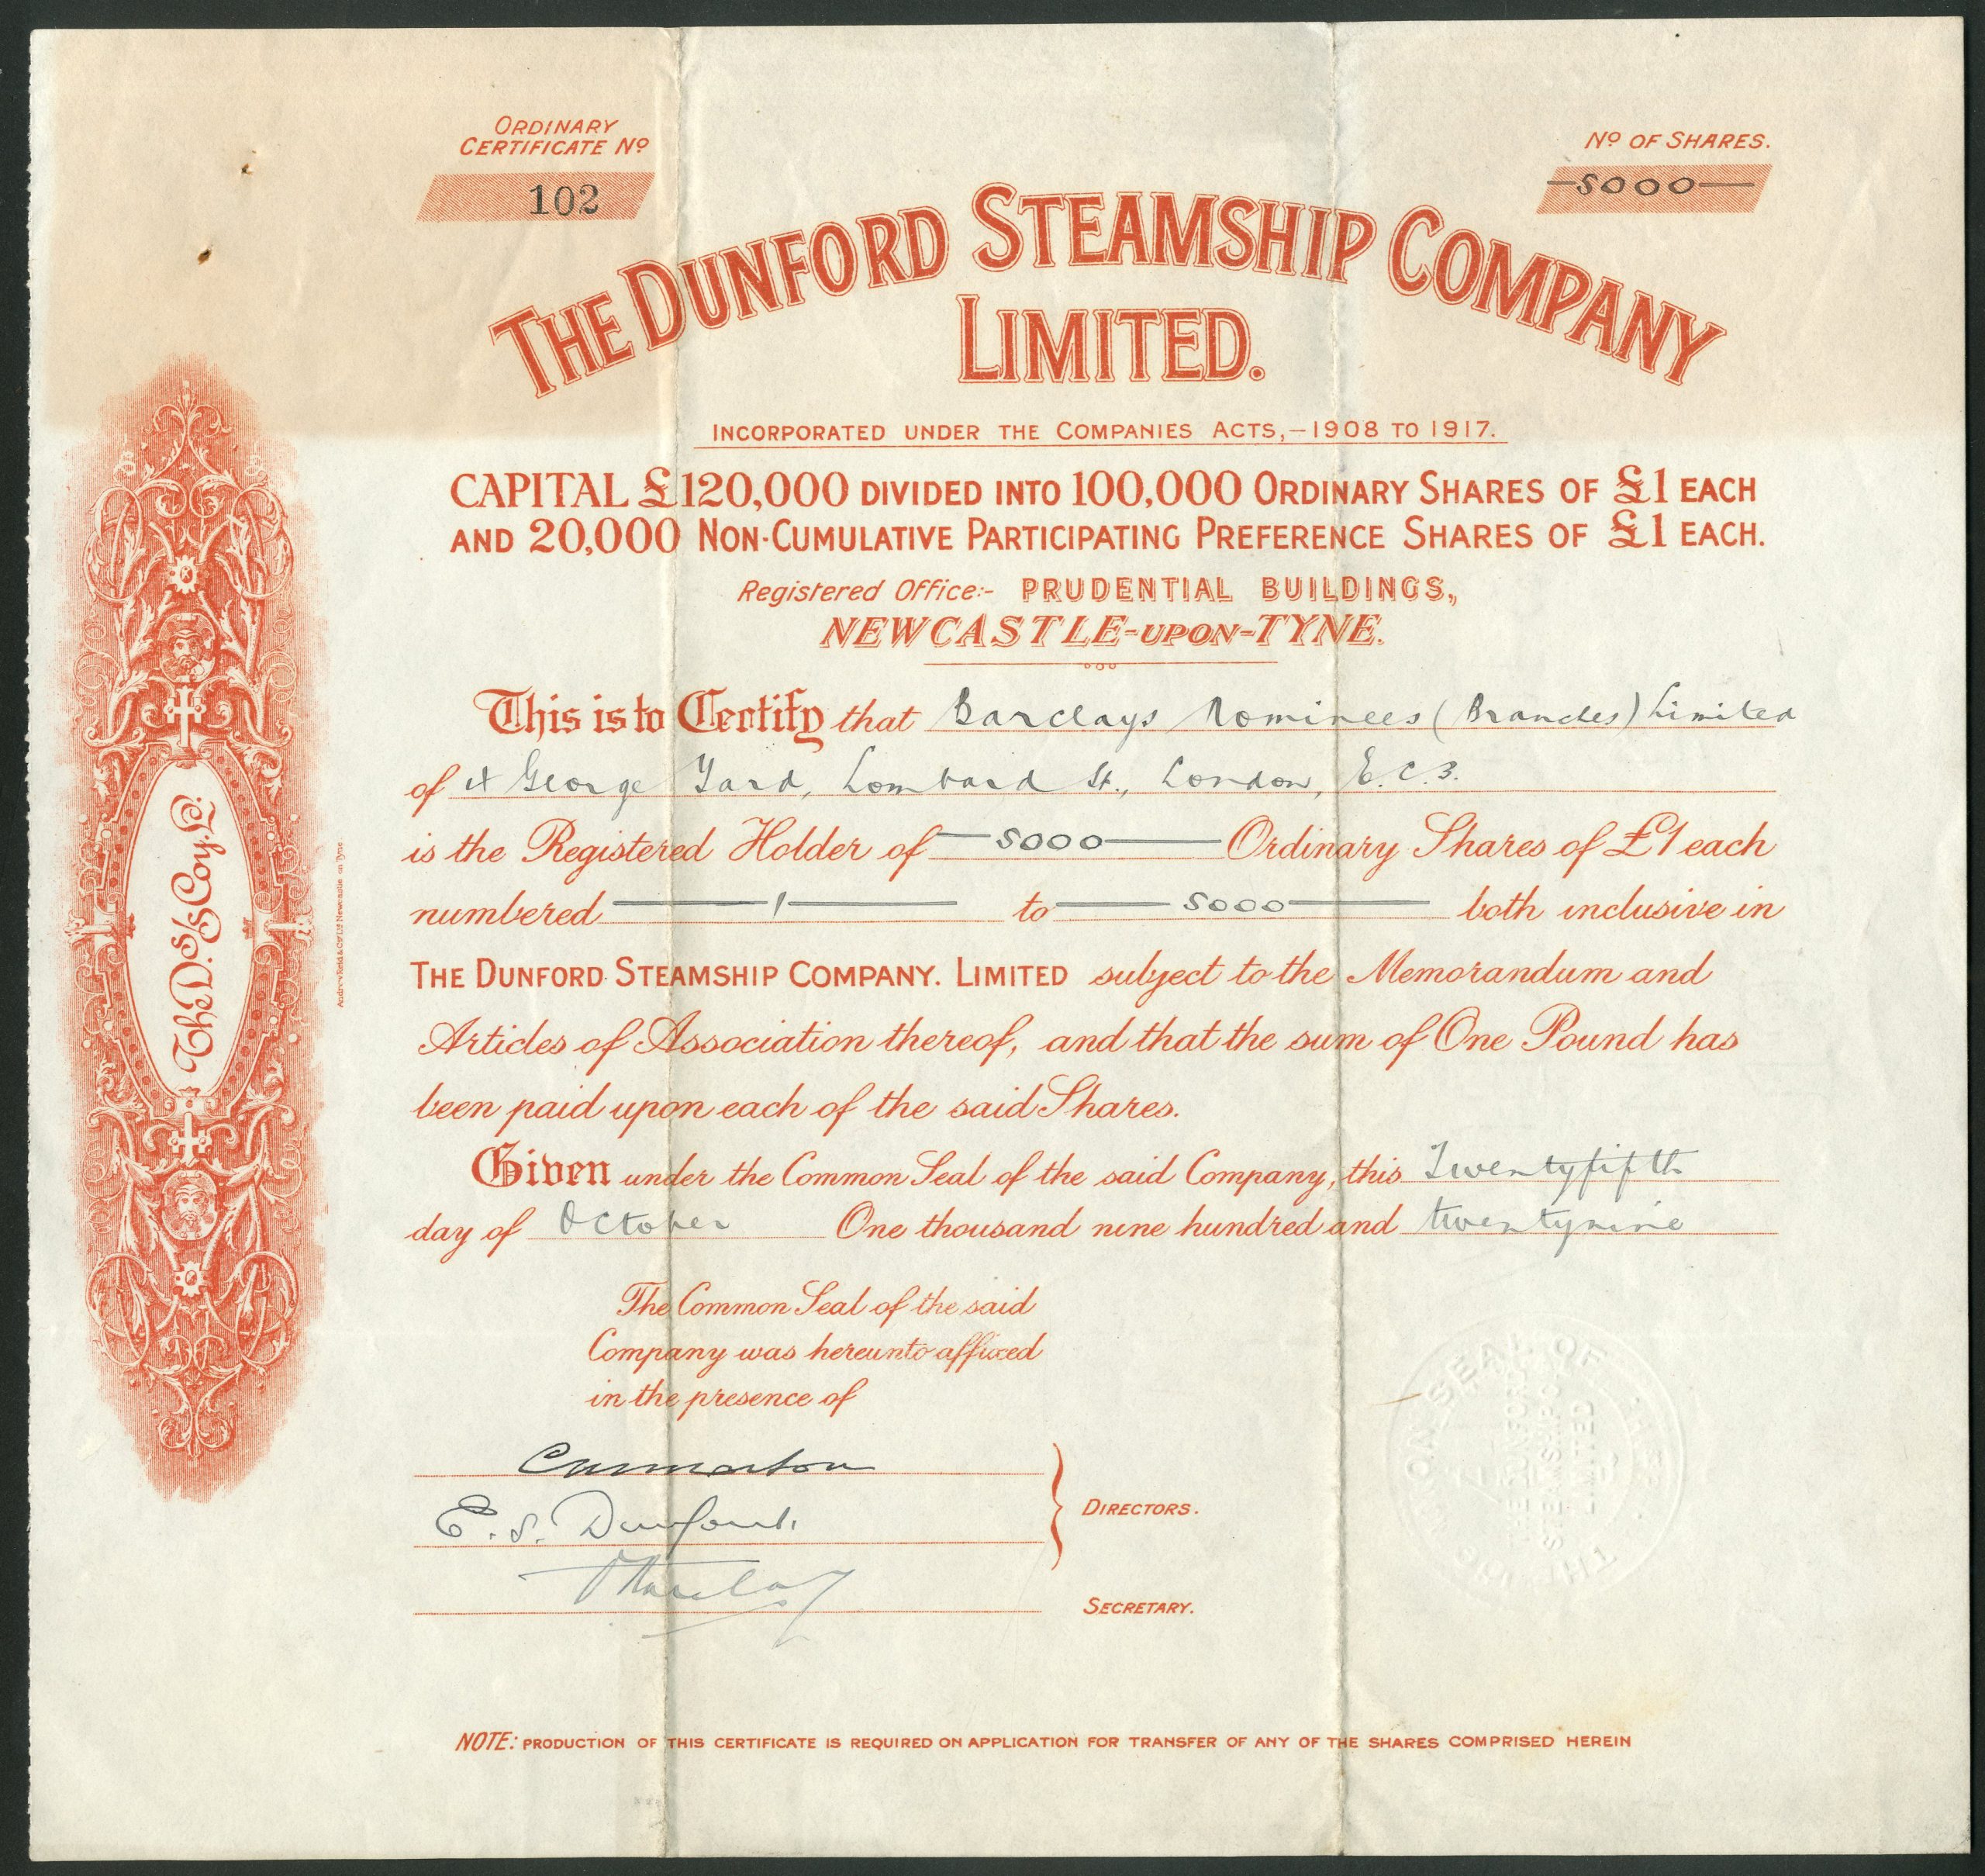 ORDINARY
CERTIFICATE Nº
102
Nº OF SHARES.
—5000—
THE DUNFORD STEAMSHIP COMPANY
LIMITED.
INCORPORATED UNDER THE COMPANIES ACTS,-1908 TO 1917.
CAPITAL £120,000 DIVIDED INTO 100,000 ORDINARY SHARES OF £1 EACH
AND 20,000 NON-CUMULATIVE PARTICIPATING PREFERENCE SHARES OF £1 EACH.
Registered Office:- PRUDENTIAL BUILDINGS,
NEWCASTLE-UPON-TYNE.
This is to Certify that Barclays Nominees (Branches) Limited
of 4 George Yard, Lombard St., London, E.C.3.
is the Registered Holder of —5000— Ordinary Shares of £1 each
numbered —1— to —5000— both inclusive in
THE DUNFORD STEAMSHIP COMPANY. LIMITED subject to the Memorandum and
Articles of Association thereof, and that the sum of One Pound has
been paid upon each of the said Shares.
Given under the Common Seal of the said Company, this Twentyfifth
day of October One thousand nine hundred and twentynine
The Common Seal of the said
Company was hereunto affixed
in the presence of
E. S. Dunford.
DIRECTORS.
SECRETARY.
NOTE: PRODUCTION OF THIS CERTIFICATE IS REQUIRED ON APPLICATION FOR TRANSFER OF ANY OF THE SHARES COMPRISED HEREIN
The D. S/S Coy. Ld.
Andrew Reid & Co Ld Newcastle on Tyne
THE COMMON SEAL OF
THE DUNFORD
STEAMSHIP CO
LIMITED